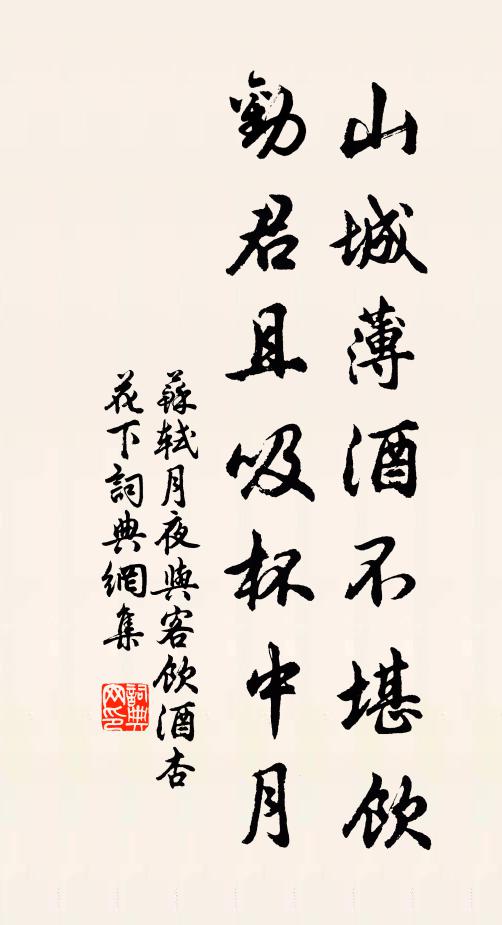 山城薄酒不堪飲
勸君且吸杯中月
蘇軾月夜與客飲酒杏
花下詞典網集
詞典
网印